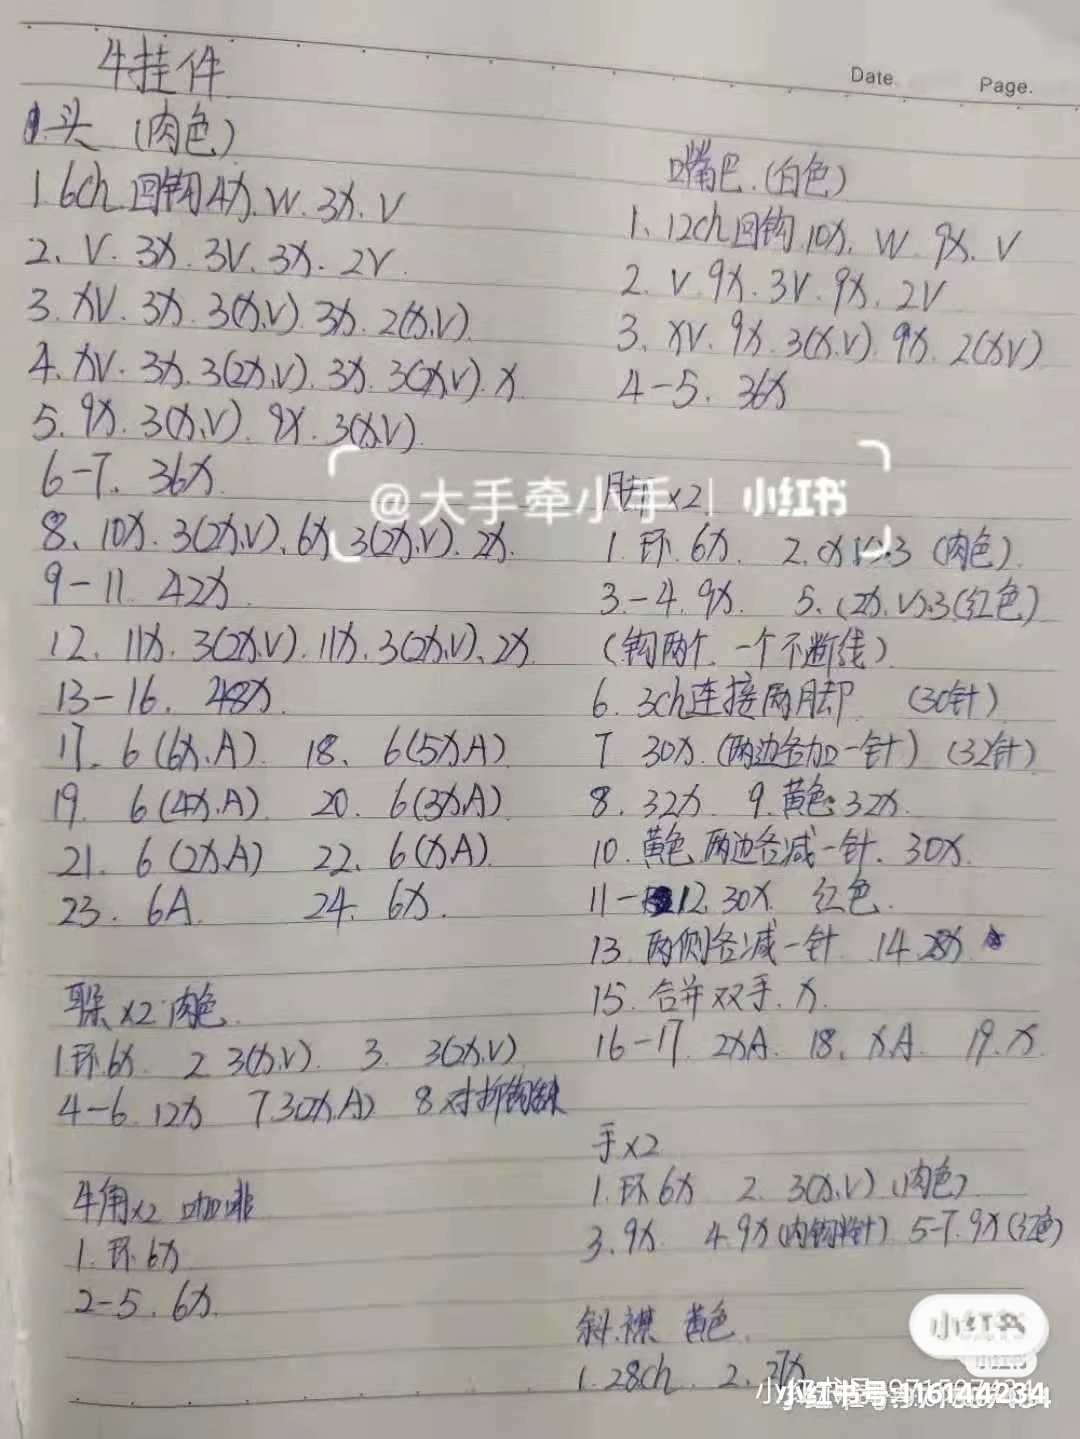 Date.
Page.
牛挂件
1.头 (肉色)
1.6ch.回钩4X.W.3X.V
2、V.3X.3V.3X.2V.
3.XV.3X.3(X.V).3X.2(X.V).
4.XV.3X.3(2X.V).3X.3(2X.V).X.
5.9X.3(X.V).9X.3(X.V).
6-7.36X.
8、10X.3(2X.V)、6X.3(2X.V).2X.
9-11.42X.
12、11X.3(2X.V).11X.3(2X.V)、2X.
13-16、48X.
17.6(6X.A) 18、6(5X.A)
19.6(4X.A) 20.6(3X.A)
21.6(2X.A) 22.6(X.A).
23.6A. 24.6X.
耳朵X2 肉色.
1.环.6X. 2 3(X.V). 3.3(2X.V)
4-6.12X 7.3(2X.A) 8.对折钩
牛角X2 咖啡
1.环.6X.
2-5.6X.
嘴巴.(白色)
1、12ch回钩.10X.W.9X.V
2.V.9X.3V.9X.2V
3、XV.9X.3(X.V).9X.2(XV)
4-5.36X
脚X2
1.环.6X. 2.(X.V).3 (肉色).
3.-4.9X. 5、(2X.V).3(红色)
(钩两个.一个不断线)
6.3ch连接两脚 (30针)
7 30X.(两边各加一针) (32针)
8.32X. 9.黄色:32X.
10.黄色.两边各减一针.30X.
11-12.30X.红色.
13.两侧各减一针.14.28X.
15.合并双手.X.
16-17.2XA.18、X.A.19.X.
手X2
1.环6X 2.3(X.V) (肉色).
3.9X. 4.9X(内钩) 5-7.9X(红色)
斜.襟 黄色.
1.28ch. 2、27X
@大手牵小手 | 小红书
小红书
小红书
小红书号: